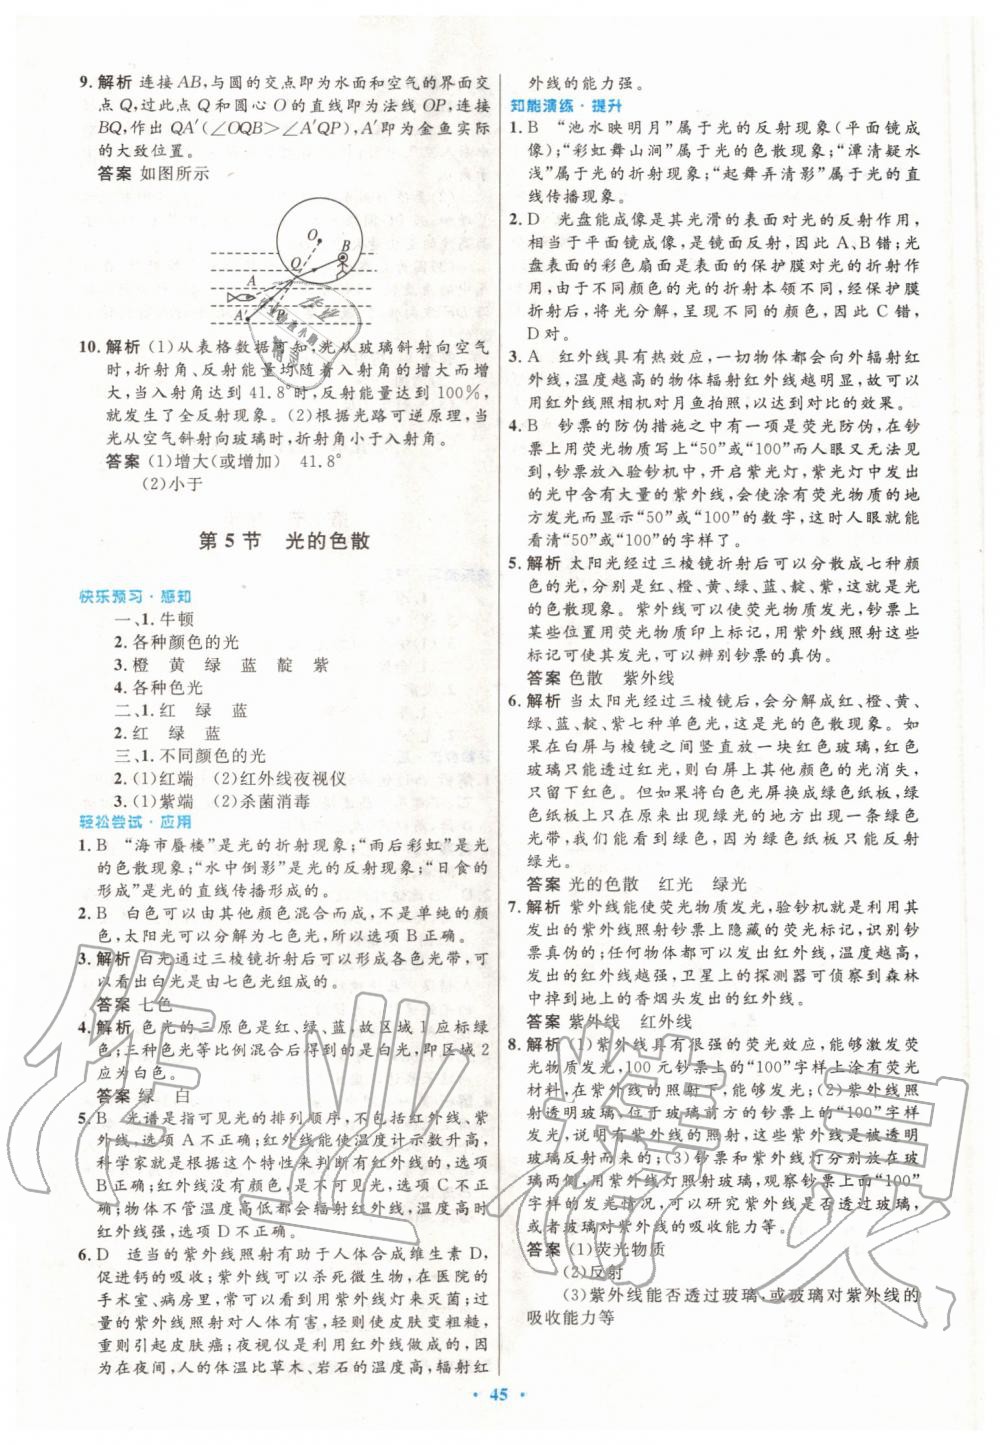 9. 解析 连接AB,与圆的交点即为水面和空气的界面交
点 Q,过此点 Q 和圆心 O 的直线即为法线 OP,连接
BQ,作出 QA′(∠OQB>∠A′QP),A′即为金鱼实际
的大致位置。
答案 如图所示
O
B
Q
A
A′
P
10. 解析 (1)从表格数据可知,光从玻璃斜射向空气
时,折射角、反射能量均随着入射角的增大而增
大,当入射角达到 41.8°时,反射能量达到100%,
就发生了全反射现象。(2)根据光路可逆原理,当
光从空气斜射向玻璃时,折射角小于入射角。
答案 (1)增大(或增加) 41.8°
(2)小于
第 5 节 光的色散
快乐预习·感知
一、1. 牛顿
2. 各种颜色的光
3. 橙 黄 绿 蓝 靛 紫
4. 各种色光
二、1. 红 绿 蓝
2. 红 绿 蓝
三、1. 不同颜色的光
2. (1)红端 (2)红外线夜视仪
3. (1)紫端 (2)杀菌消毒
轻松尝试·应用
1. B “海市蜃楼”是光的折射现象;“雨后彩虹”是光
的色散现象;“水中倒影”是光的反射现象;“日食的
形成”是光的直线传播形成的。
2. B 白色可以由其他颜色混合而成,不是单纯的颜
色,太阳光可以分解为七色光,所以选项B正确。
3. 解析 白光通过三棱镜折射后可以形成各色光带,可
以看出白光是由七色光组成的。
答案 七色
4. 解析 色光的三原色是红、绿、蓝,故区域 1 应标绿
色;三种色光等比例混合后得到的是白光,即区域 2
应为白色。
答案 绿 白
5. B 光谱是指可见光的排列顺序,不包括红外线、紫
外线,选项 A 不正确;红外线能使温度计示数升高,
科学家就是根据这个特性来判断有红外线的,选项
B正确;红外线没有颜色,是不可见光,选项 C 不正
确;物体不管温度高低都会辐射红外线,温度高时
红外线强,选项 D 不正确。
6. D 适当的紫外线照射有助于人体合成维生素 D,
促进钙的吸收;紫外线可以杀死微生物,在医院的
手术室、病房里,常可以看到用紫外线灯来灭菌;过
量的紫外线照射对人体有害,能使皮肤变粗糙,
重则引起皮肤癌;夜视仪是利用红外线做成的,因
为在夜间,人的体温比草木、岩石的温度高,辐射红
外线的能力强。
知能演练·提升
1. B “池水映明月”属于光的反射现象(平面镜成
像);“彩虹舞山涧”属于光的色散现象;“潭清疑水
浅”属于光的折射现象;“起舞弄清影”属于光的直
线传播现象。
2. D 光盘能成像是其光滑的表面对光的反射作用,
相当于平面镜成像,是镜面反射,因此 A、B 错;光
盘表面的彩色扇面是表面的保护膜对光的折射作
用,由于不同颜色的光的折射本领不同,经保护膜
折射后,将光分解,呈现不同的颜色,因此 C 错,
D对。
3. A 红外线具有热效应,一切物体都会向外辐射红
外线,温度越高的物体辐射红外线越明显,故可以
用红外线照相机对月鱼拍照,以达到对比的效果。
4. B 钞票的防伪措施之中有一项是荧光防伪,在钞
票上用荧光物质写上“50”或“100”而人眼又无法见
到,钞票放入验钞机中,开启紫光灯,紫光灯中发出
的光中含有大量的紫外线,会使涂有荧光物质的地
方发光而显示“50”或“100”的数字,这时人眼就能
看清“50”或“100”的字样了。
5. 解析 太阳光经过三棱镜折射后可以分散成七种颜
色的光,分别是红、橙、黄、绿、蓝、靛、紫,这就是光
的色散现象。紫外线可以使荧光物质发光,钞票上
某些位置用荧光物质印上标记,用紫外线照射这些
标记可使其发光,可以辨别钞票的真伪。
答案 色散 紫外线
6. 解析 当太阳光经过三棱镜后,会分解成红、橙、黄、
绿、蓝、靛、紫七种单色光,这是光的色散现象。如
果在白屏与棱镜之间竖直放一块红色玻璃,红色
玻璃只能透过红光,则白屏上其他颜色的光消失,
只留下红色光。但如果将白色光屏换成绿色纸板,
绿色纸板上只在原来出现绿光的地方出现一条绿色
光带,我们能看到绿色,因为绿色纸板只能反射
绿光。
答案 光的色散 红光 绿光
7. 解析 紫外线能使荧光物质发光,验钞机就是利用其
发出的紫外线照射钞票上隐藏的荧光标记,识别钞
票真伪的;任何物体都可以发出红外线,温度越高,
发出的红外线越强,卫星上的探测器可侦察到森林
中掉在地上的香烟头发出的红外线。
答案 紫外线 红外线
8. 解析 (1)紫外线具有很强的荧光效应,能够激发荧
光物质发光,100元钞票上的“100”字样上涂有荧光
材料,在紫外线的照射下,能够发光;(2)紫外线照
射透明玻璃,位于玻璃前方的钞票上的“100”字样
发光,说明有紫外线的照射,这些紫外线是被透明
玻璃反射而来的;(3)钞票和紫外线灯分别放在玻
璃两侧,用紫外线照射玻璃,观察钞票上面“100”
字样的发光情况,可以研究紫外线是否透过玻璃,
或者研究玻璃对紫外线的吸收能力等。
答案 (1)荧光物质
(2)反射
(3)紫外线能否透过玻璃,或玻璃对紫外线的
吸收能力等
· 45 ·
作业精灵